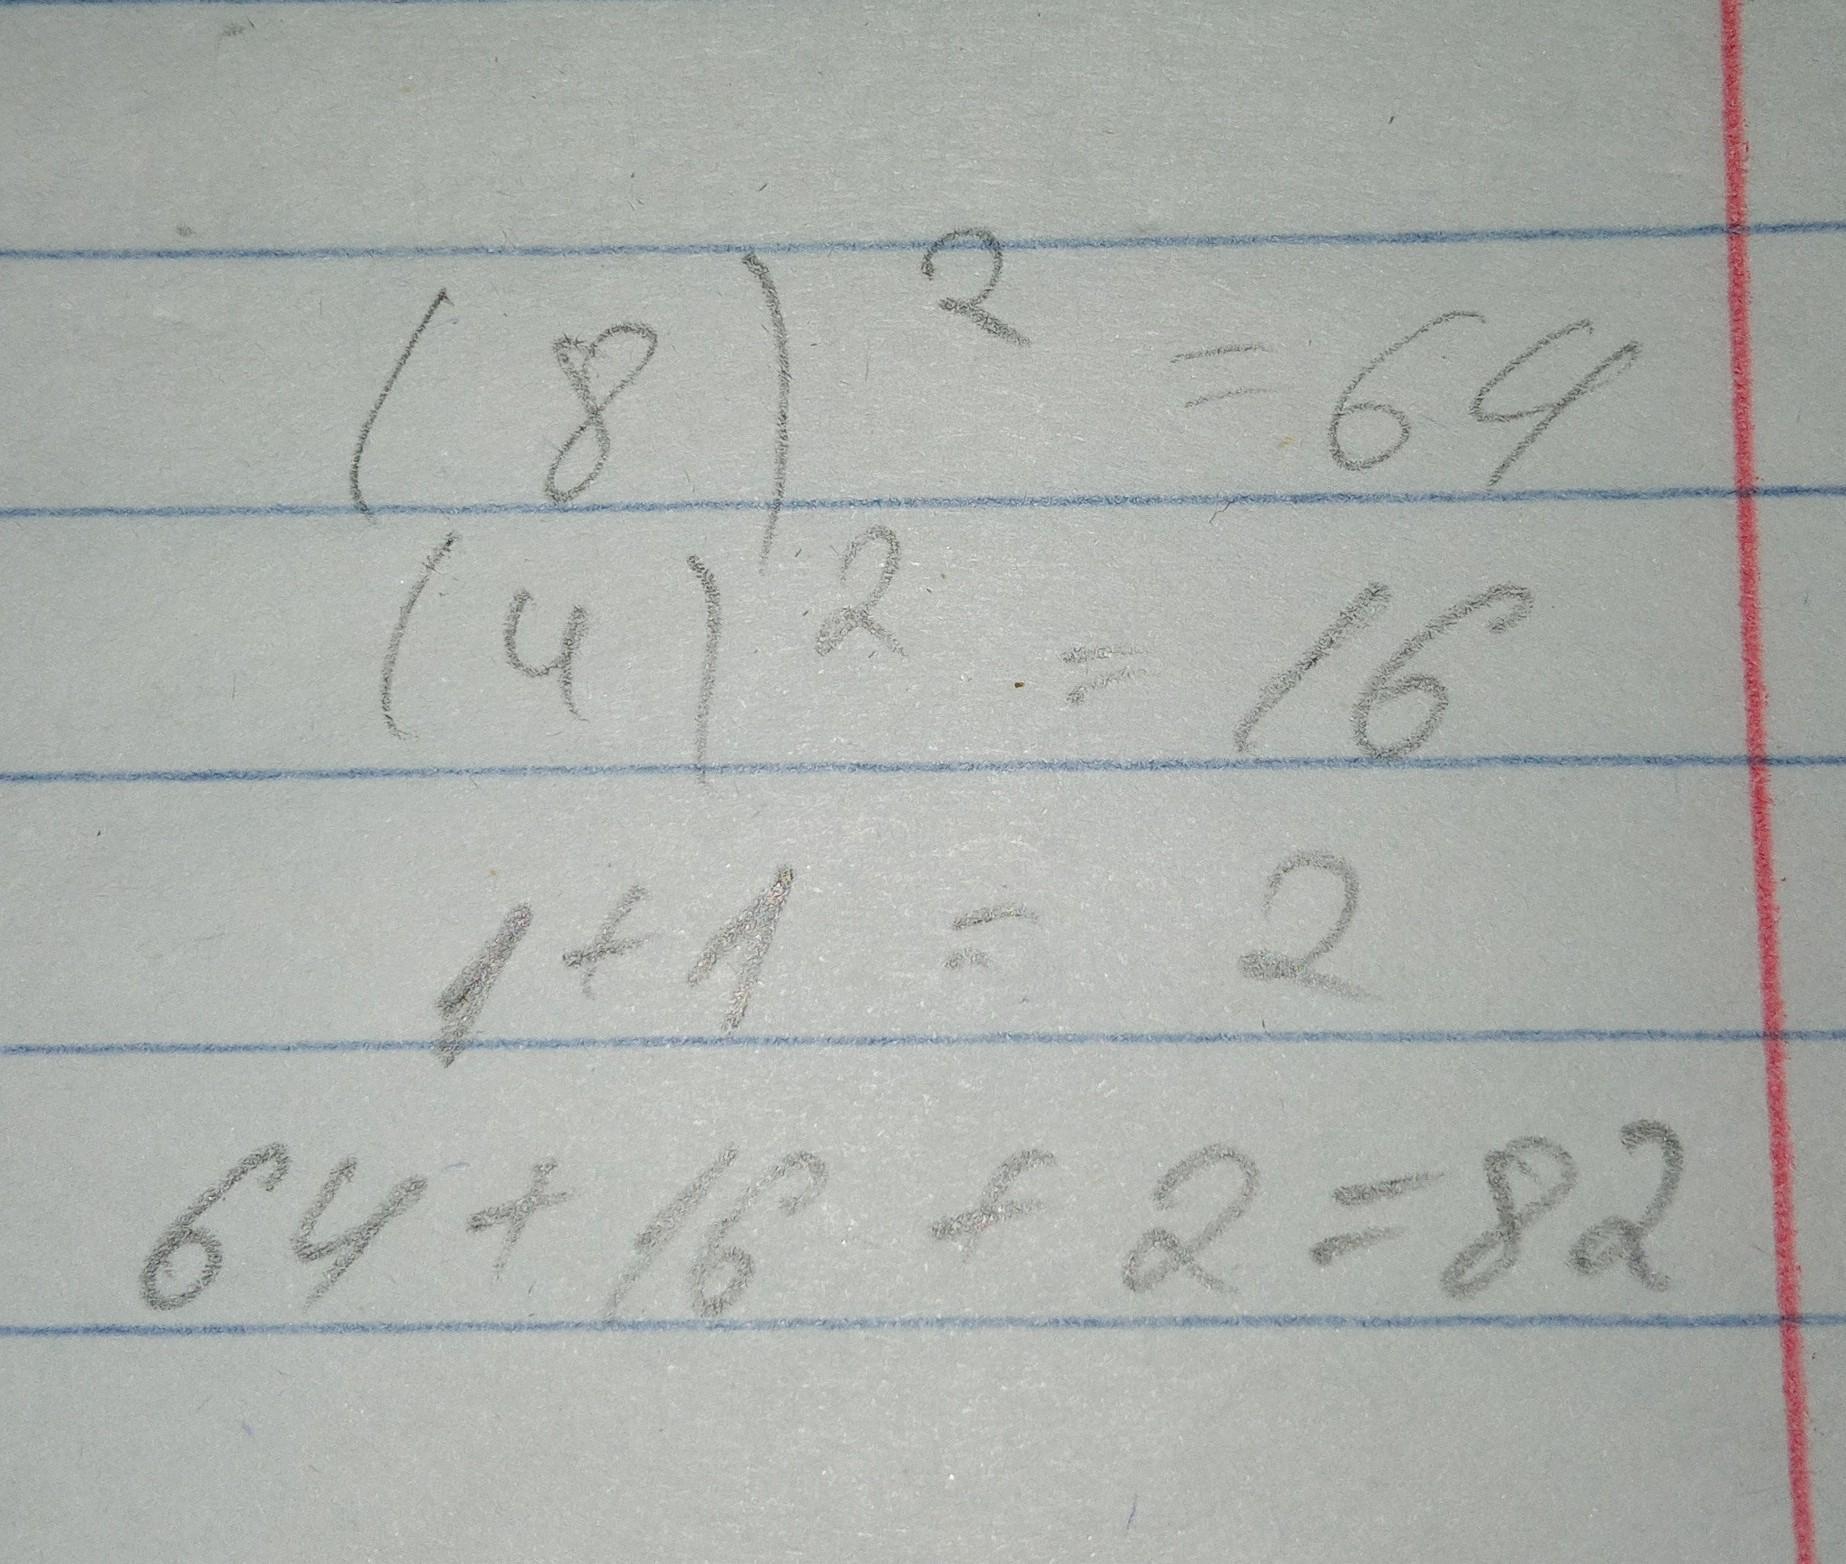 (8)² = 64
(4)² = 16
1 + 1 = 2
64 + 16 + 2 = 82